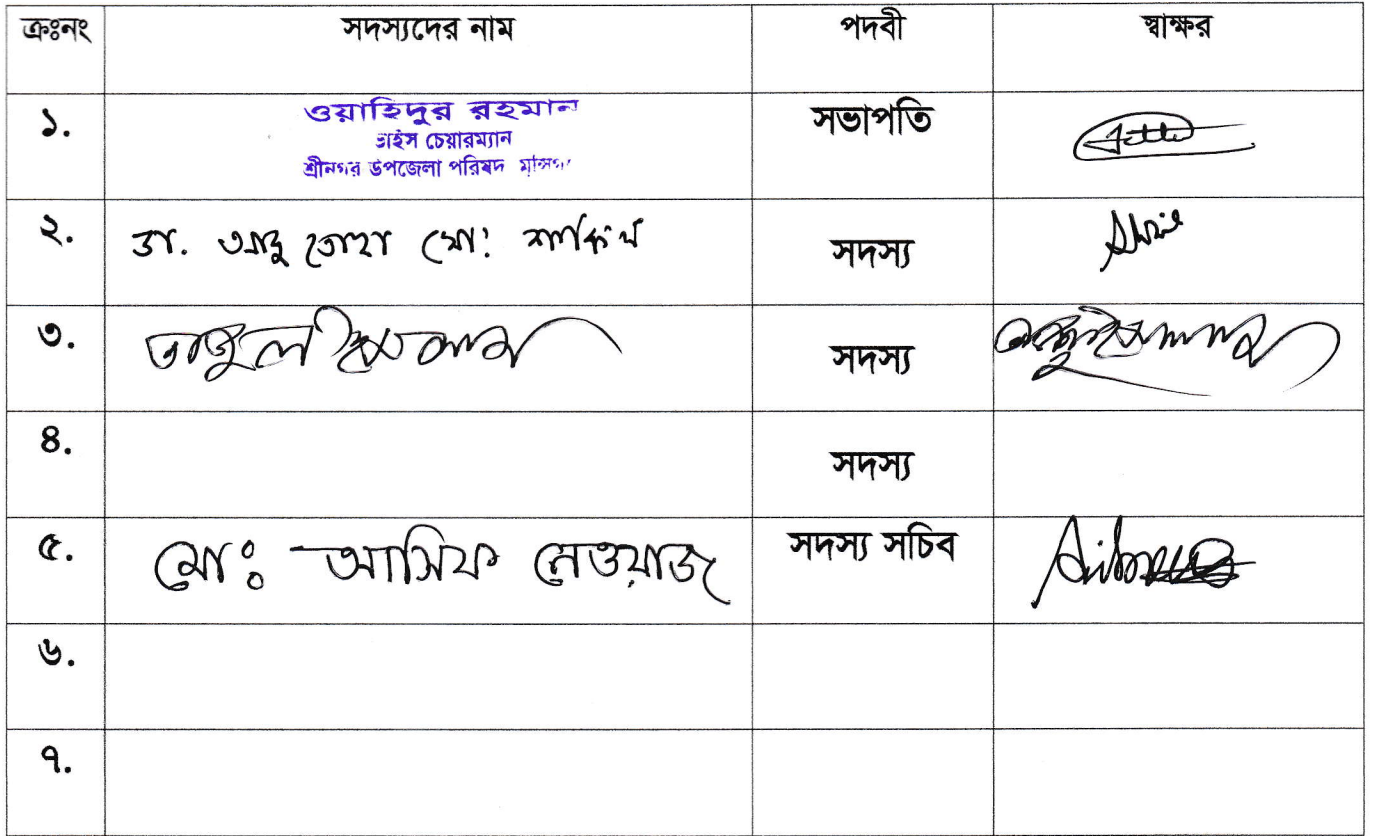 ক্রঃনং সদস্যদের নাম পদবী স্বাক্ষর
১. ওয়াহিদুর রহমান সভাপতি
ভাইস চেয়ারম্যান
শ্রীনগর উপজেলা পরিষদ
২. ডা. আবু তোহা মো: সদস্য
৩. তাজুল ইসলাম সদস্য
৪. সদস্য
৫. মোঃ আসিফ নেওয়াজ সদস্য সচিব
৬.
৭.